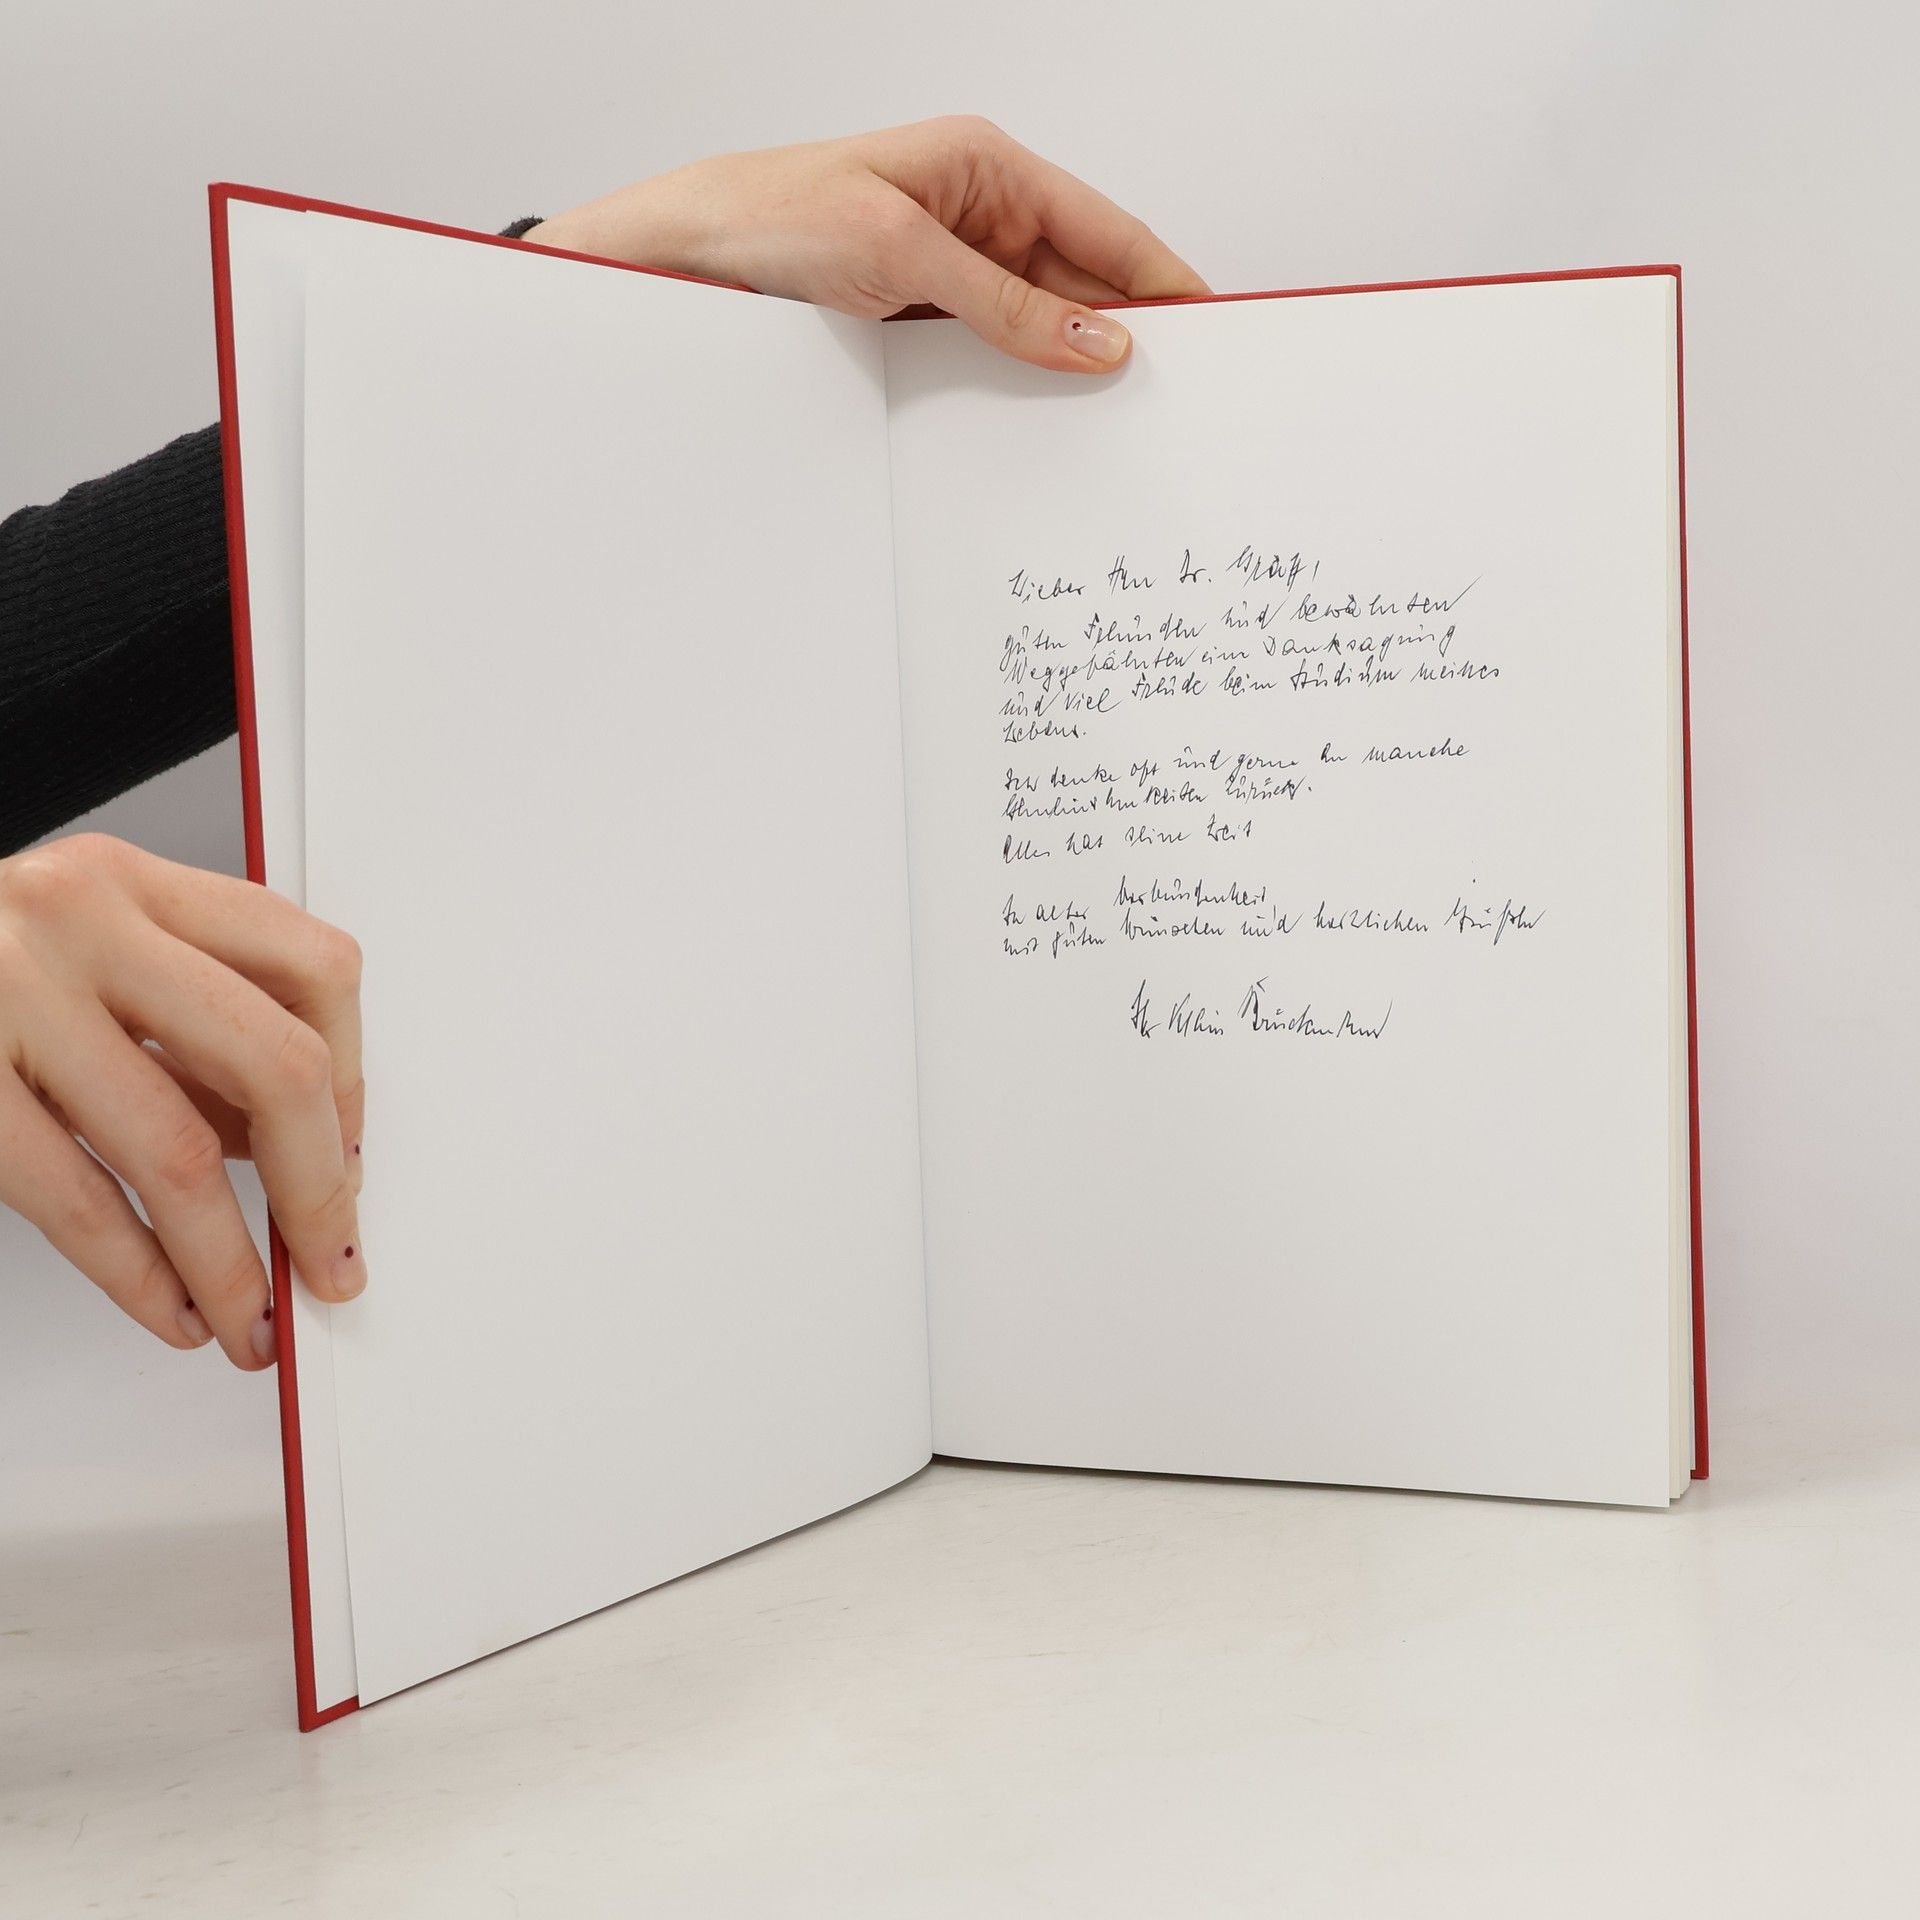 Lieber Herr Dr. Gräff,
guten Freunden und bewährten
Weggefährten eine Danksagung
und viel Freude beim Studium meines
Lebens.
Ich denke oft und gerne an manche
zurück.
Alles hat seine Zeit
In alter Verbundenheit,
mit guten Wünschen und herzlichen Grüßen
Ihr Klein